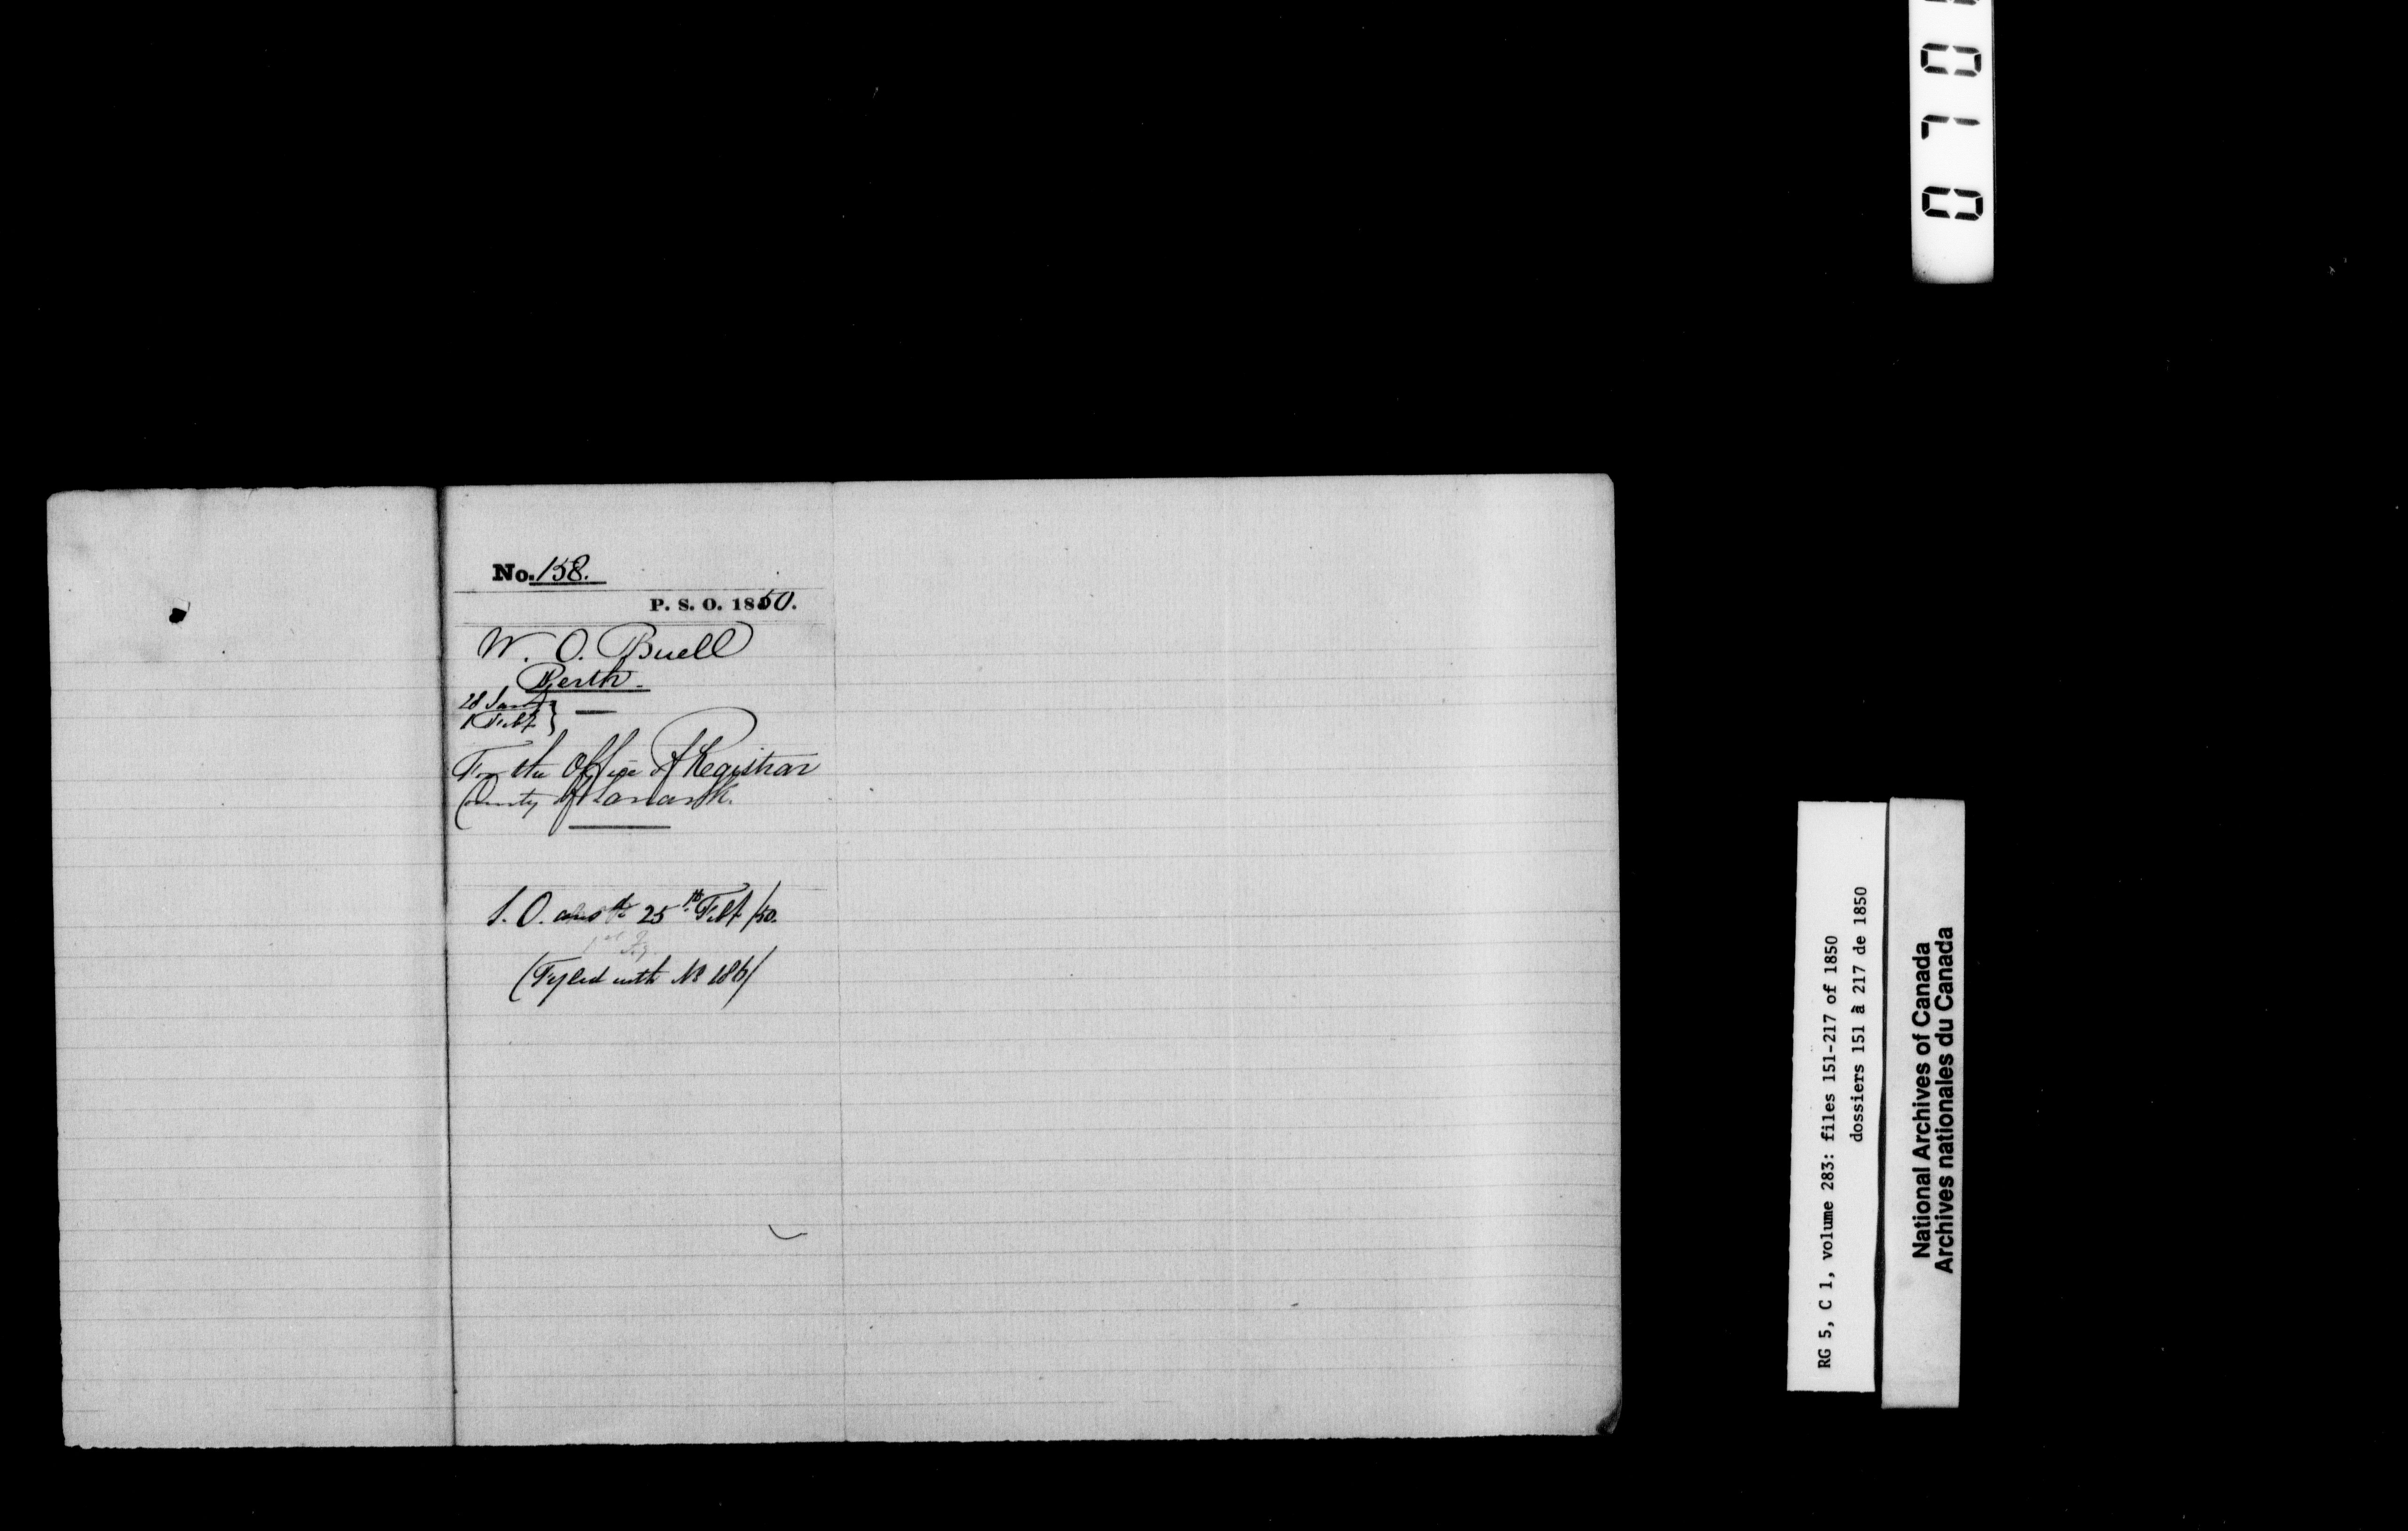 No. 158.
P. S. O. 1850.
W. O. Buell
Perth.
28 Jany
1 Feby
For the Office of Registrar
County of Lanark.
S. O. 25th Feby /50.
(Fyled with No 186)
RG 5, C 1, volume 283: files 151-217 of 1850
dossiers 151 à 217 de 1850
National Archives of Canada
Archives nationales du Canada